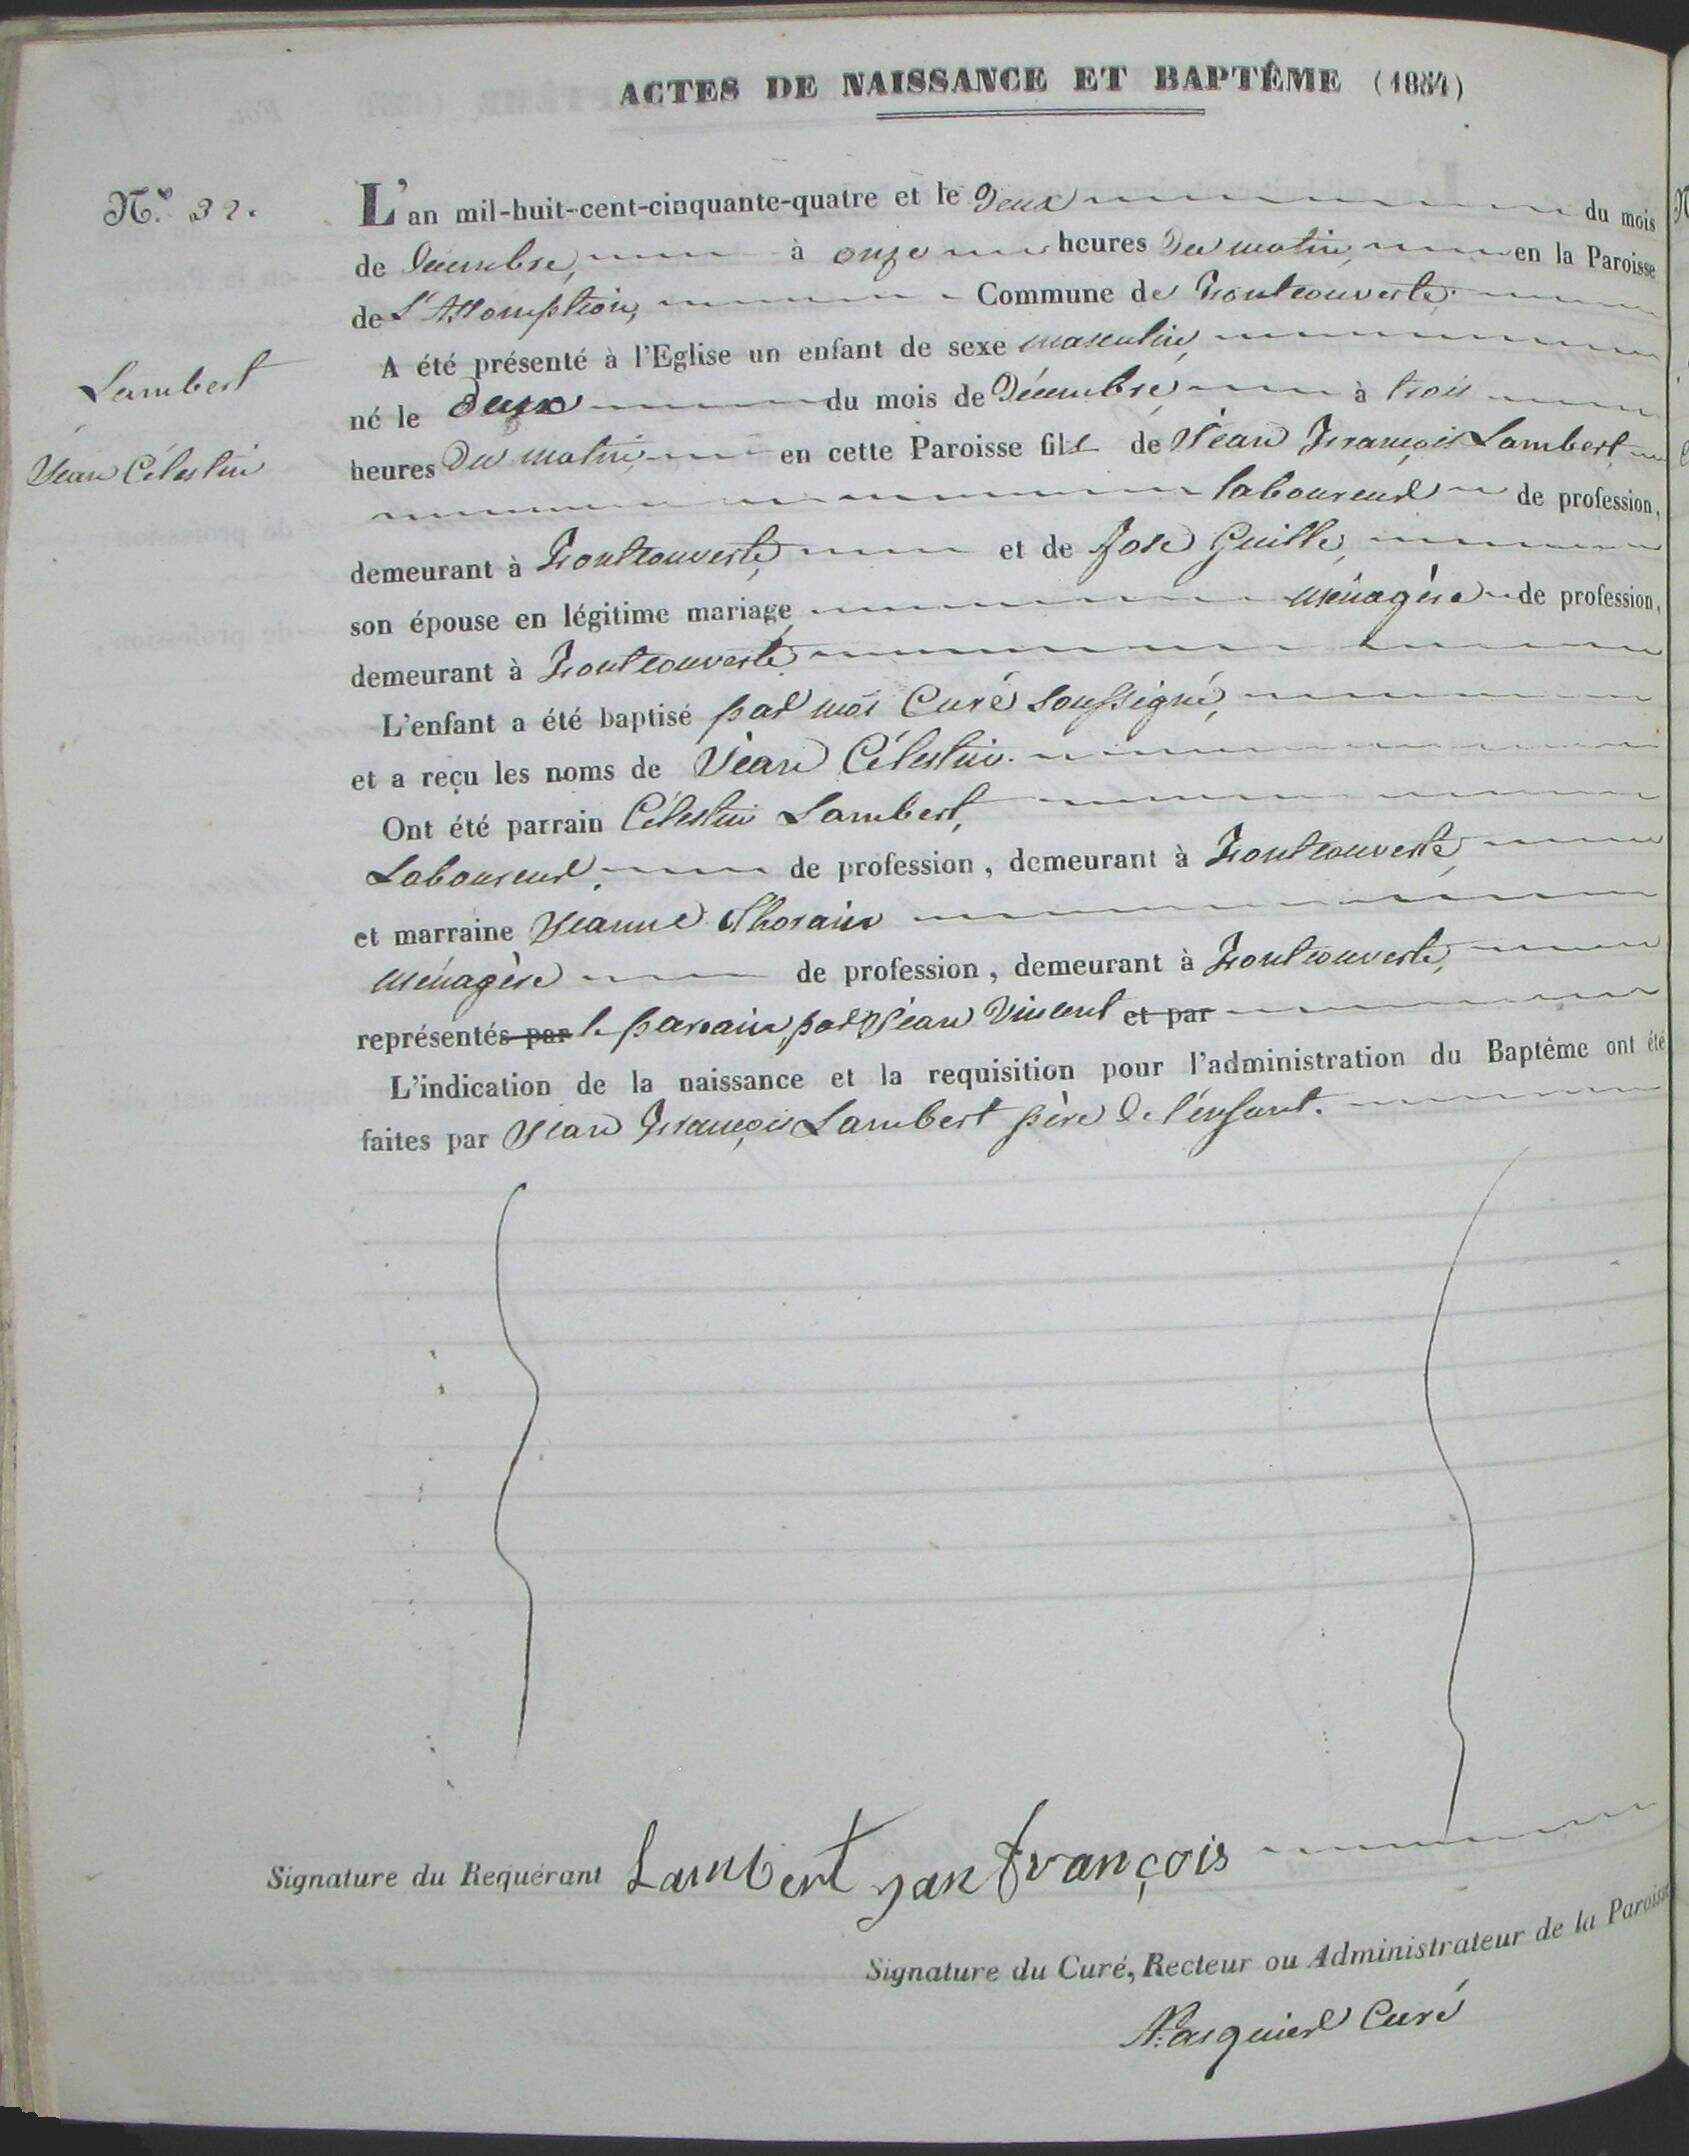 ACTES DE NAISSANCE ET BAPTÊME (1854)
N.º 32.
L'an mil-huit-cent-cinquante-quatre et le Deux du mois
de Décembre, à onze heures Du matin, en la Paroisse
de L'Assomption, Commune de Frontcouverte,
A été présenté à l'Eglise un enfant de sexe masculin,
Lambert
né le Deux du mois de Décembre à trois
Jean Célestin
heures Du matin en cette Paroisse fils de Jean François Lambert
laboureur de profession,
demeurant à Frontcouverte, et de Rose Guille,
son épouse en légitime mariage ménagère de profession,
demeurant à Frontcouverte
L'enfant a été baptisé par moi Curé soussigné,
et a reçu les noms de Jean Célestin.
Ont été parrain Célestin Lambert,
Laboureur, de profession, demeurant à Frontcouverte,
et marraine Jeanne
ménagère de profession, demeurant à Frontcouverte,
représentés par le parrain, par Jean Vincent et par
L'indication de la naissance et la requisition pour l'administration du Baptême ont été
faites par Jean François Lambert père de l'enfant.
Signature du Requérant Lambert jan françois
Signature du Curé, Recteur ou Administrateur de la Paroisse
Pasquier Curé